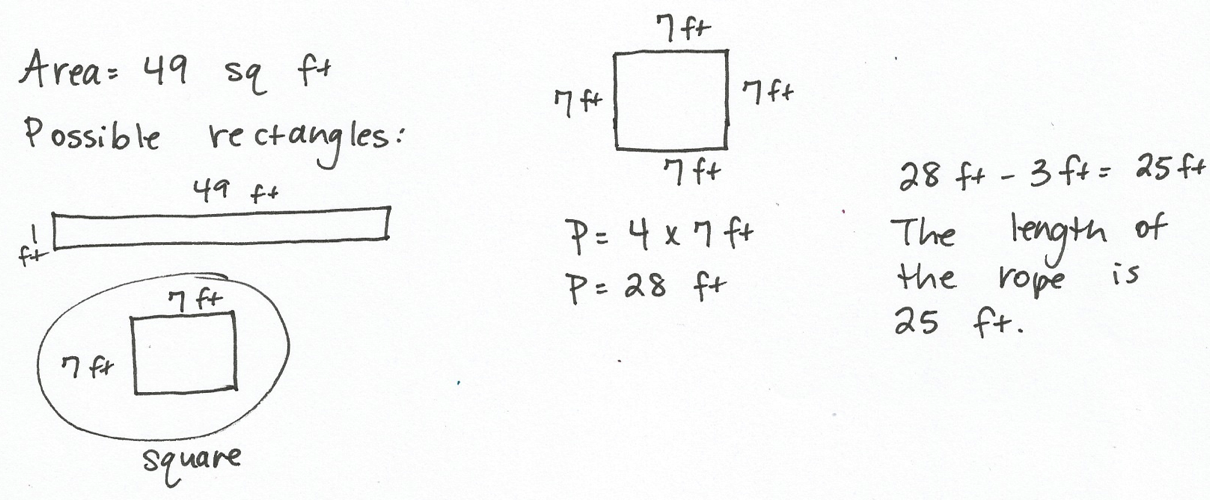 Area= 49 sq ft
Possible rectangles:
49 ft
1 ft
7 ft
7 ft
square
7 ft
7 ft
7 ft
7 ft
P= 4 x 7 ft
P= 28 ft
28 ft - 3 ft = 25 ft
The length of
the rope is
25 ft.